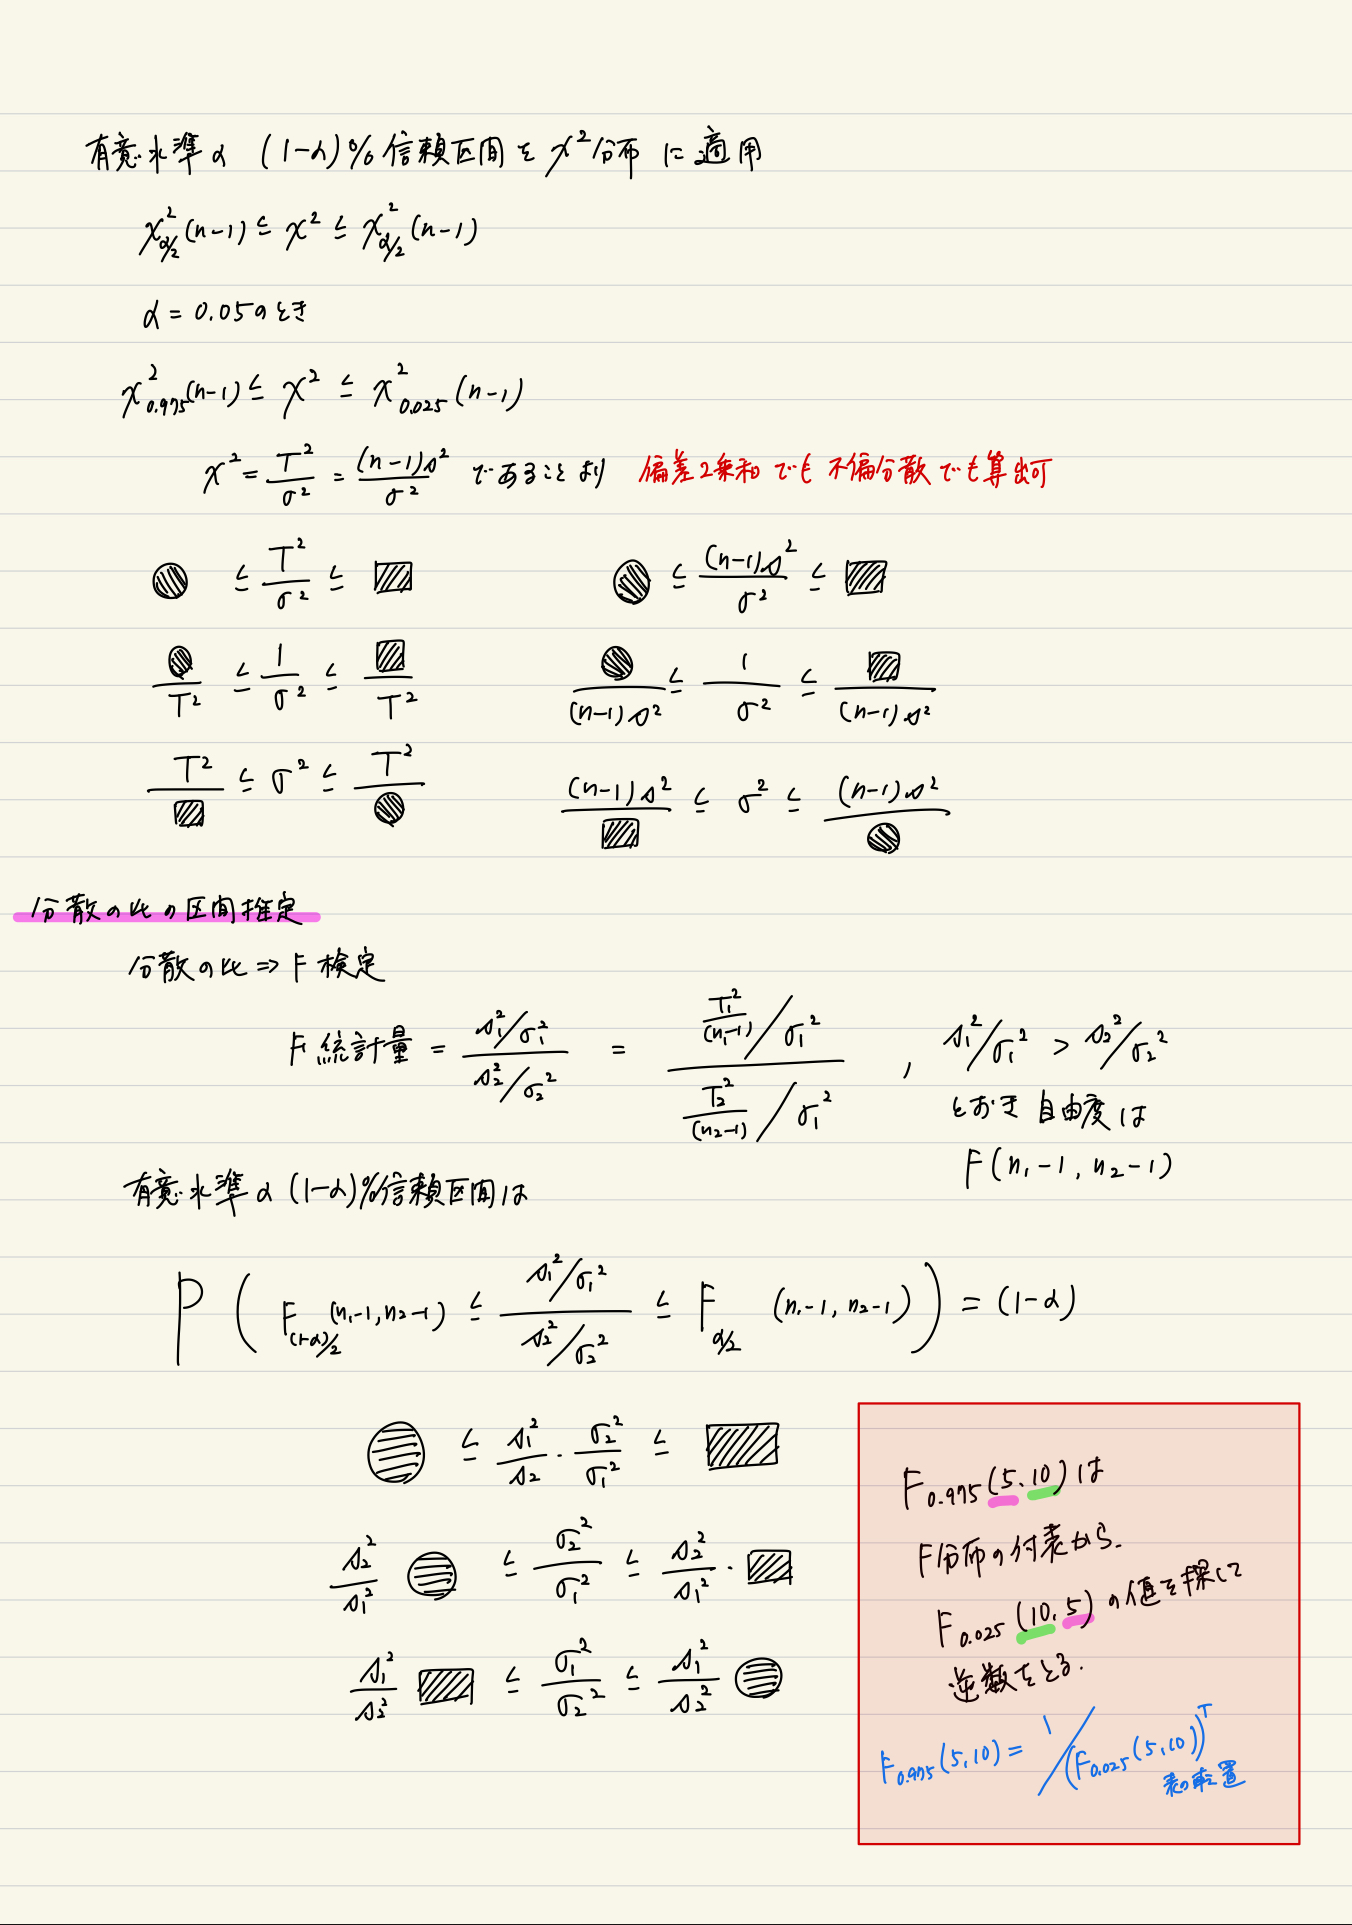 有意水準α (1-α)%信頼区間をχ²分布に適用
χ²α/2(n-1) ≦ χ² ≦ χ²α/2(n-1)
α = 0.05のとき
χ²0.975(n-1) ≦ χ² ≦ χ²0.025(n-1)
χ² = T²/σ² = (n-1)s²/σ² であることより 偏差2乗和でも不偏分散でも算出可
≦ T²/σ² ≦   ≦ (n-1)s²/σ² ≦
/T² ≦ 1/σ² ≦ /T²   /(n-1)s² ≦ 1/σ² ≦ /(n-1)s²
T²/ ≦ σ² ≦ T²/   (n-1)s²/ ≦ σ² ≦ (n-1)s²/
分散の比の区間推定
分散の比 ⇒ F検定
F統計量 = (s₁²/σ₁²)/(s₂²/σ₂²) = (T₁²/(n₁-1)/σ₁²)/(T₂²/(n₂-1)/σ₁²) , s₁²/σ₁² > s₂²/σ₂²
とおき 自由度は
F(n₁-1, n₂-1)
有意水準α (1-α)%信頼区間は
P( F(1-α)/2 (n₁-1, n₂-1) ≦ (s₁²/σ₁²)/(s₂²/σ₂²) ≦ Fα/2 (n₁-1, n₂-1) ) = (1-α)
≦ s₁²/s₂ · σ₂²/σ₁² ≦
s₂²/s₁² ≦ σ₂²/σ₁² ≦ s₂²/s₁² ·
s₁²/s₂² ≦ σ₁²/σ₂² ≦ s₁²/s₂²
F0.975(5.10)は
F分布の付表から.
F0.025(10.5)の値を探して
逆数をとる.
F0.975(5,10) = 1/(F0.025(5,10))ᵀ
表の転置